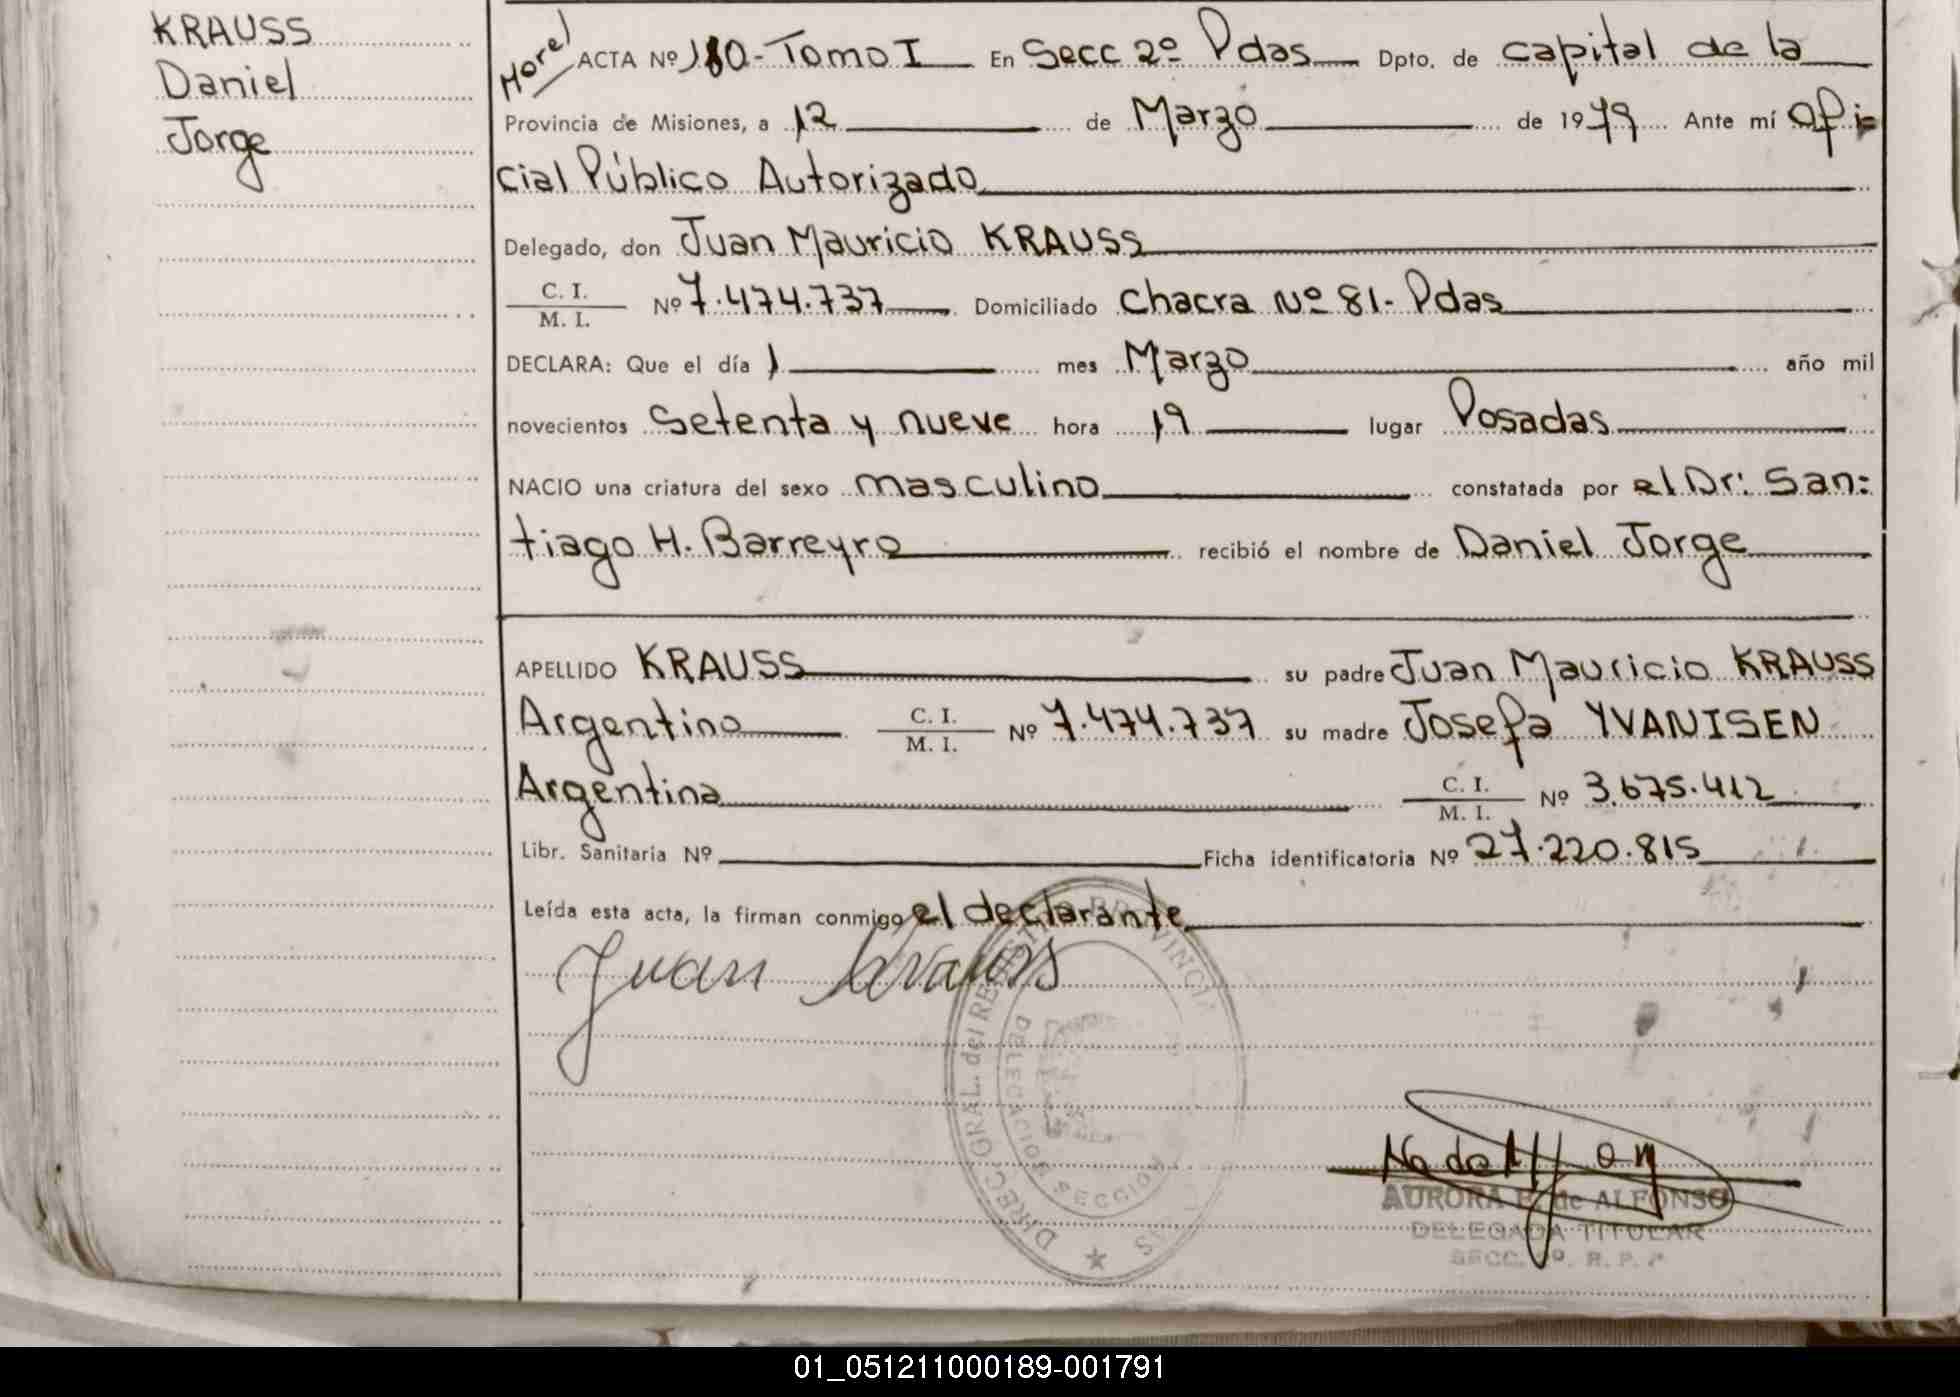 KRAUSS
Daniel
Jorge
Morel
ACTA Nº 180 - Tomo I En Secc 2º Pdas Dpto. de capital de la
Provincia de Misiones, a 12 de Marzo de 1979 Ante mí Ofi
cial Público Autorizado
Delegado, don Juan Mauricio KRAUSS
C. I.
M. I. Nº 7.474.737 Domiciliado Chacra Nº 81 - Pdas
DECLARA: Que el día 1 mes Marzo año mil
novecientos setenta y nueve hora 19 lugar Posadas
NACIO una criatura del sexo masculino constatada por el Dr: San:
tiago H. Barreyro recibió el nombre de Daniel Jorge
APELLIDO KRAUSS su padre Juan Mauricio KRAUSS
Argentino C. I. M. I. Nº 7.474.737 su madre Josefa YVANISEN
Argentina C. I. M. I. Nº 3.675.412
Libr. Sanitaria Nº Ficha identificatoria Nº 27.220.815
Leída esta acta, la firman conmigo el declarante
Juan Krauss
DIREC. GRAL. del REGISTRO PROVINCIAL
DELEGACION SECCION
AURORA de ALFONSO
DELEGADA TITULAR
SECC. R. P.
01_051211000189-001791